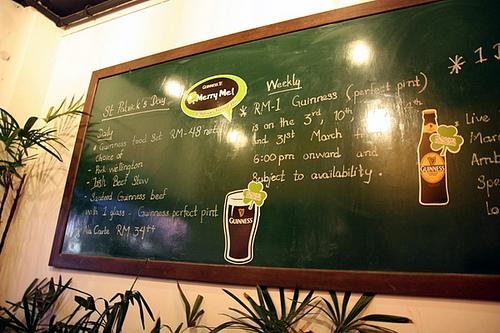 St Patrick's Day
Daily
* Guinness food Set RM-48 nett
Choice of
- Pork wellington
- Irish Beef Stew
- Seafood Guinness beef
with 1 glass - Guinness perfect pint
* Ala Carte RM 34++
GUINNESS
Merry Me!
Weekly
* RM-1 Guinness (perfect pint)
is on the 3rd, 10th,
and 31st March
6:00pm onward and
Subject to availability.
GUINNESS
GUINNESS
* 1
Live